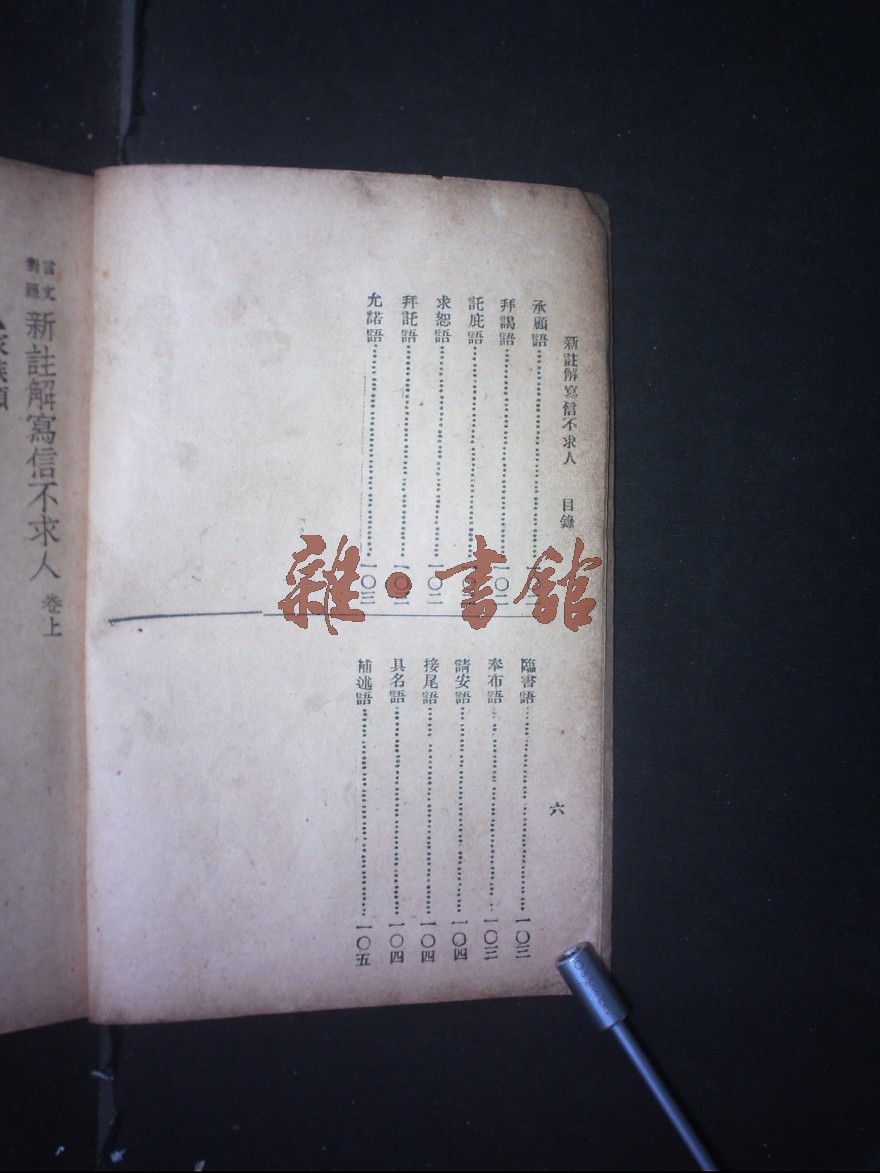 新註解寫信不求人 目錄 六
承顧語
拜謁語 一〇二
託庇語
求恕語 一〇二
拜託語
允諾語 一〇三
臨書語 一〇三
奉布語 一〇三
請安語 一〇四
接尾語 一〇四
具名語 一〇四
補述語 一〇五
言文對照 新註解寫信不求人 卷上
雜·書館